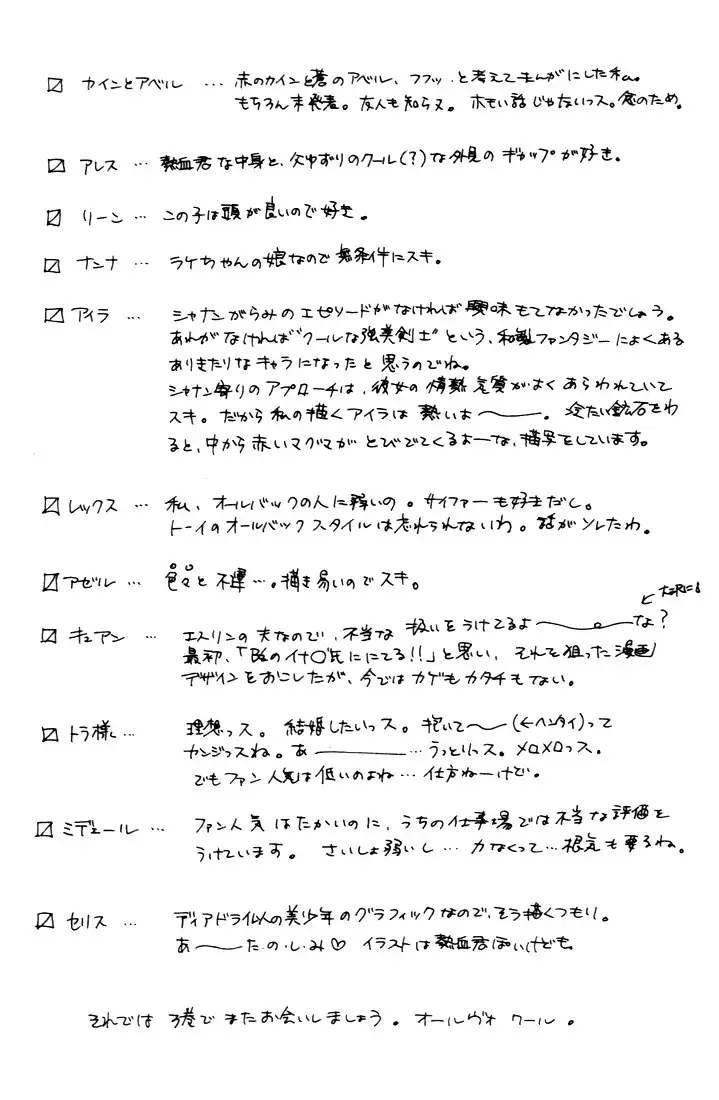 カインとアベル … 赤のカインと蒼のアベル、フフッ と考えてまんがにした私。
もちろん未発表。友人も知らヌ。ホモい話じゃないっス。念のため。
アレス … 熱血君な中身と、父ゆずりのクール(?)な外見のギャップが好き。
リーン … この子は頭が良いので好き。
ナンナ … ラケちゃんの娘なので無条件にスキ。
アイラ … シャナンがらみのエピソードがなければ興味もてなかったでしょう。
あれがなければ"クールな強美剣士"という、和製ファンタジーによくある
ありきたりなキャラになったと思うのでね。
シャナン寄りのアプローチは、彼女の情熱気質がよくあらわれていて
スキ。だから私の描くアイラは熱いよ〜。冷たい鉱石をわ
ると、中から赤いマグマがとびでてくるよーな、描写をしています。
レックス … 私、オールバックの人に弱いの。サイファーも好きだし。
トーイのオールバックスタイルは忘れられないわ。話がソレたわ。
アゼル … 色々と不運…。描き易いのでスキ。
大沢に
キュアン … エスリンの夫なので、不当な扱いをうけてるよ〜な?
最初、「B'zのイナ○氏ににてる!!」と思い、それを狙った漫画
デザインをおこしたが、今ではカゲもカタチもない。
トラ様 … 理想っス。結婚したいっス。抱いて〜(←ヘンタイ)って
カンジっスね。あ〜…うっとりっス。メロメロっス。
でもファン人気は低いのよね…仕方ねーけど。
ミデェール … ファン人気はたかいのに、うちの仕事場では不当な評価を
うけています。 さいしょ弱いし…力なくって…根気も要るね。
セリス … ディアドラ似の美少年のグラフィックなので、そう描くつもり。
あ〜た・の・し・み♡ イラストは熱血君ぽいけども。
それでは 3巻で またお会いしましょう。オールヴォワール。